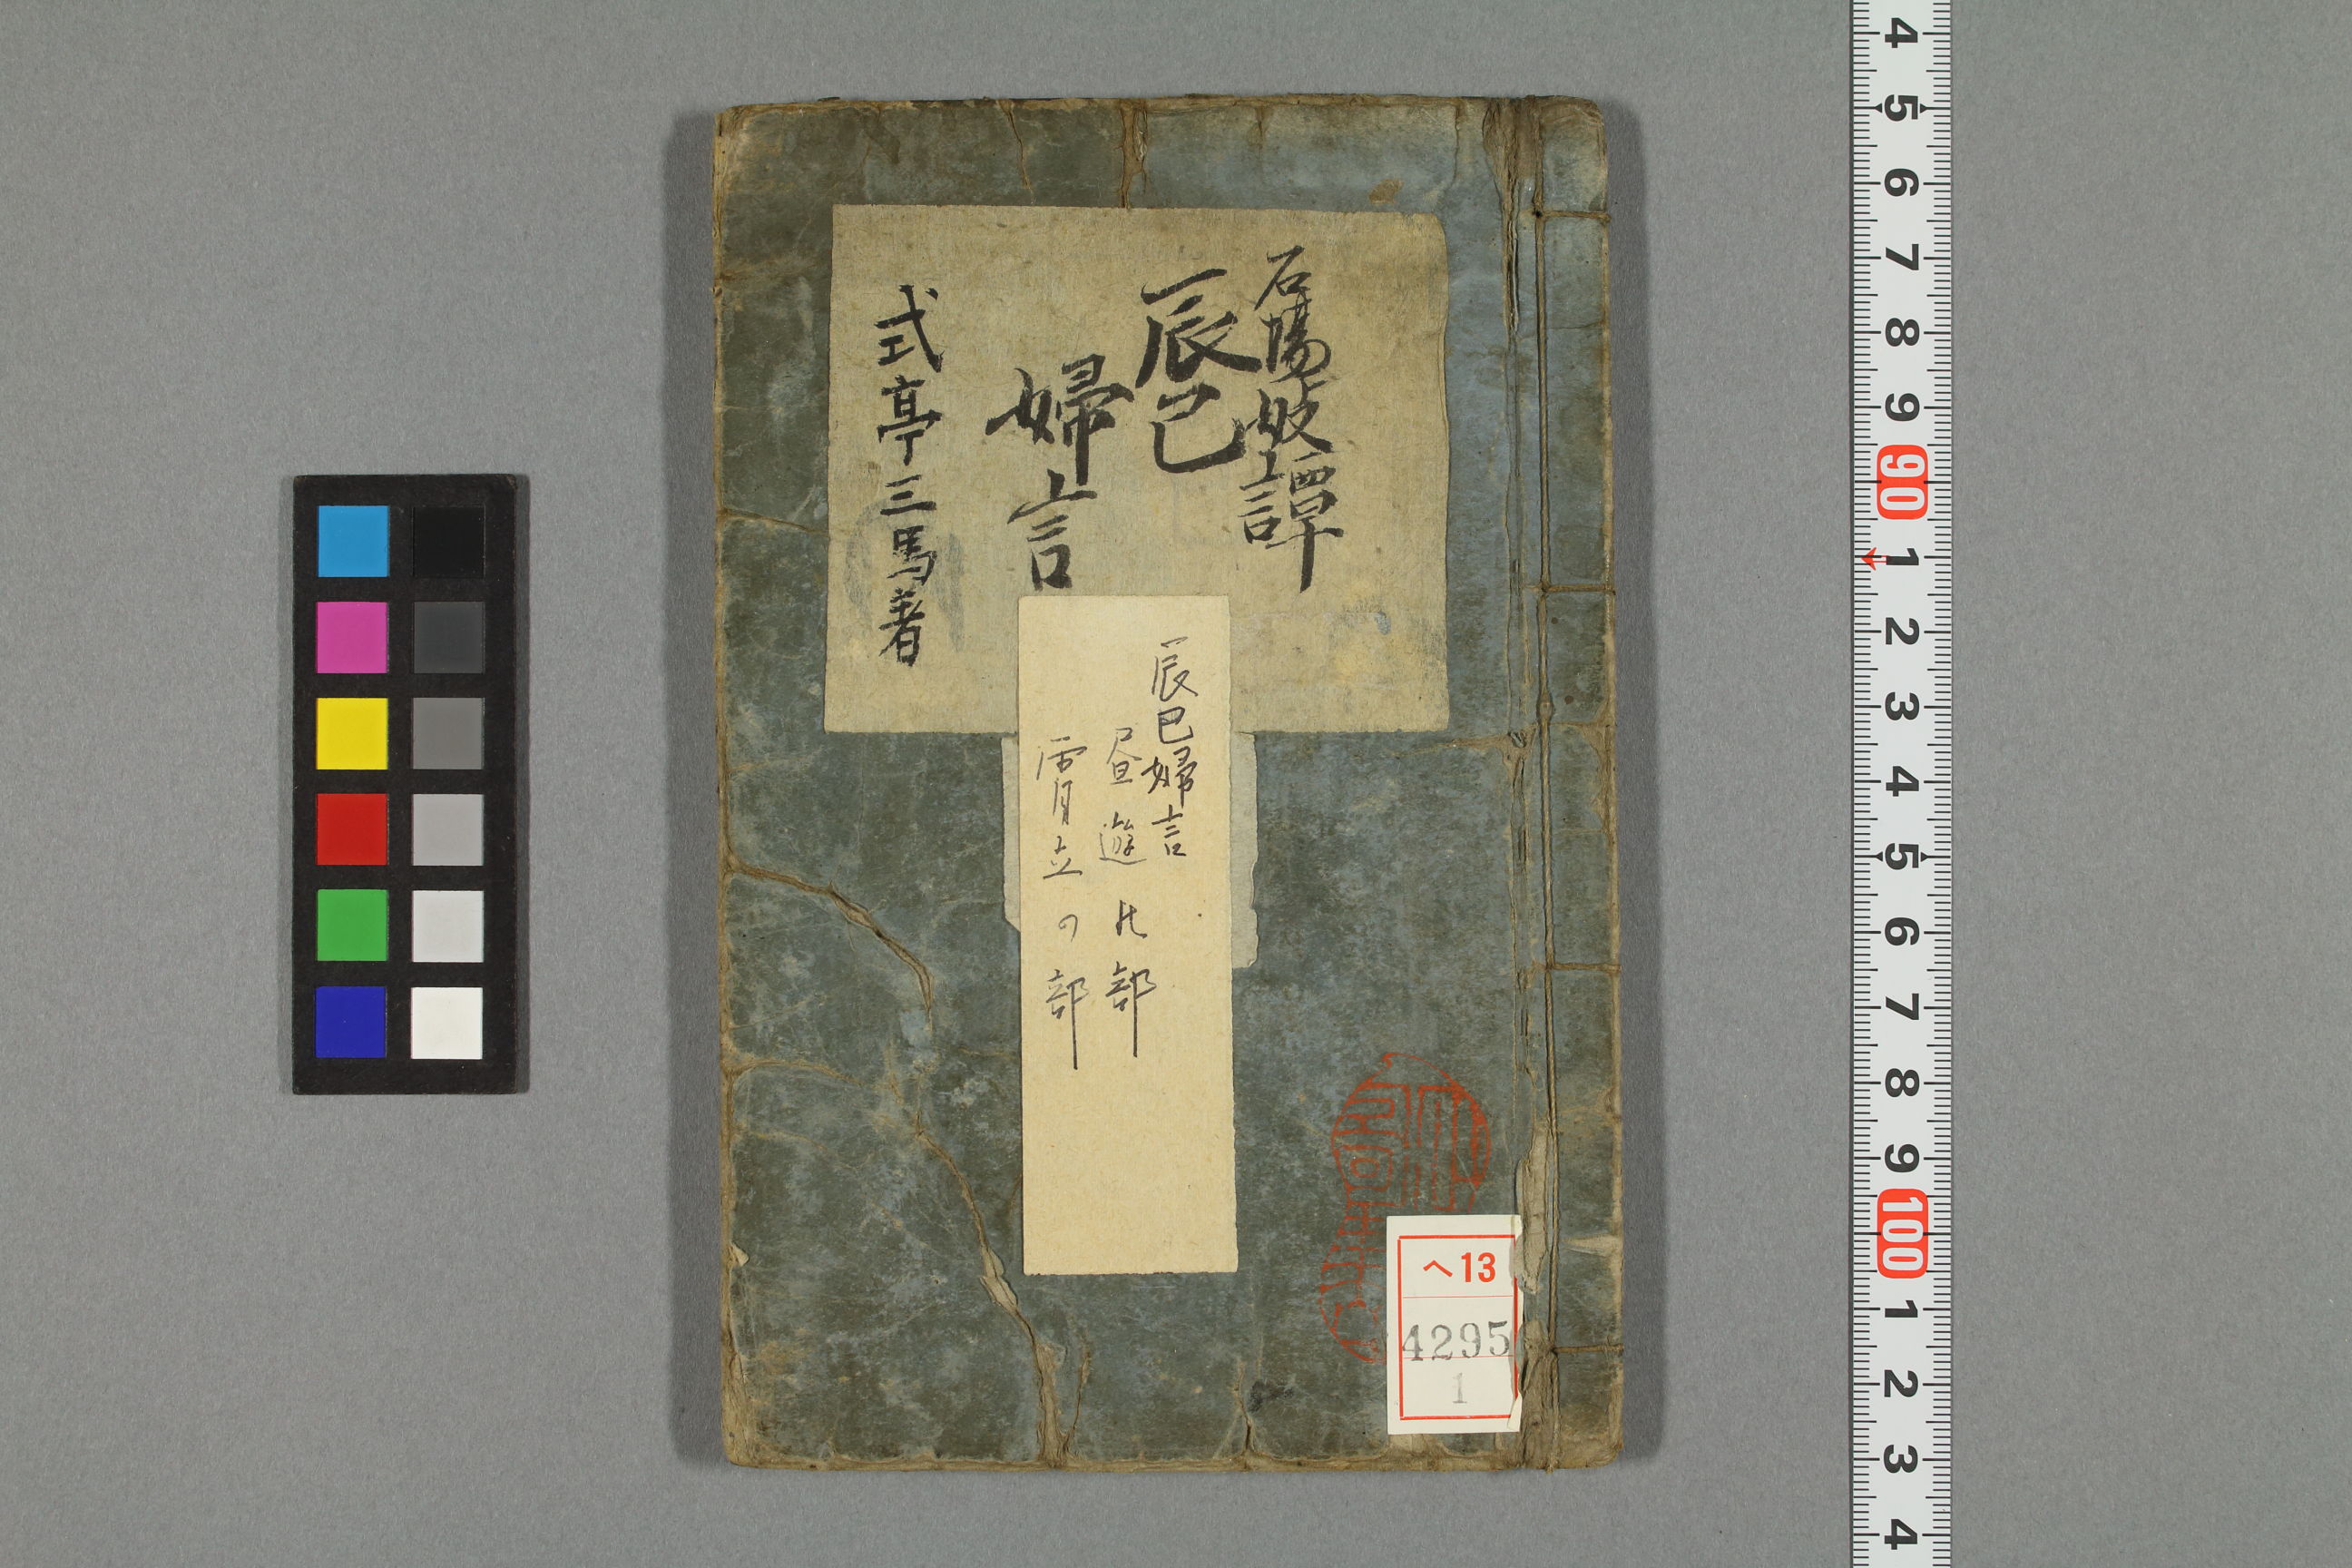 石場妓譚
辰巳
婦言
式亭三馬著
辰巳婦言
昼遊の部
宵立の部
ヘ13
4295
1
4
5
6
7
8
9
90
1
2
3
4
5
6
7
8
9
100
1
2
3
4